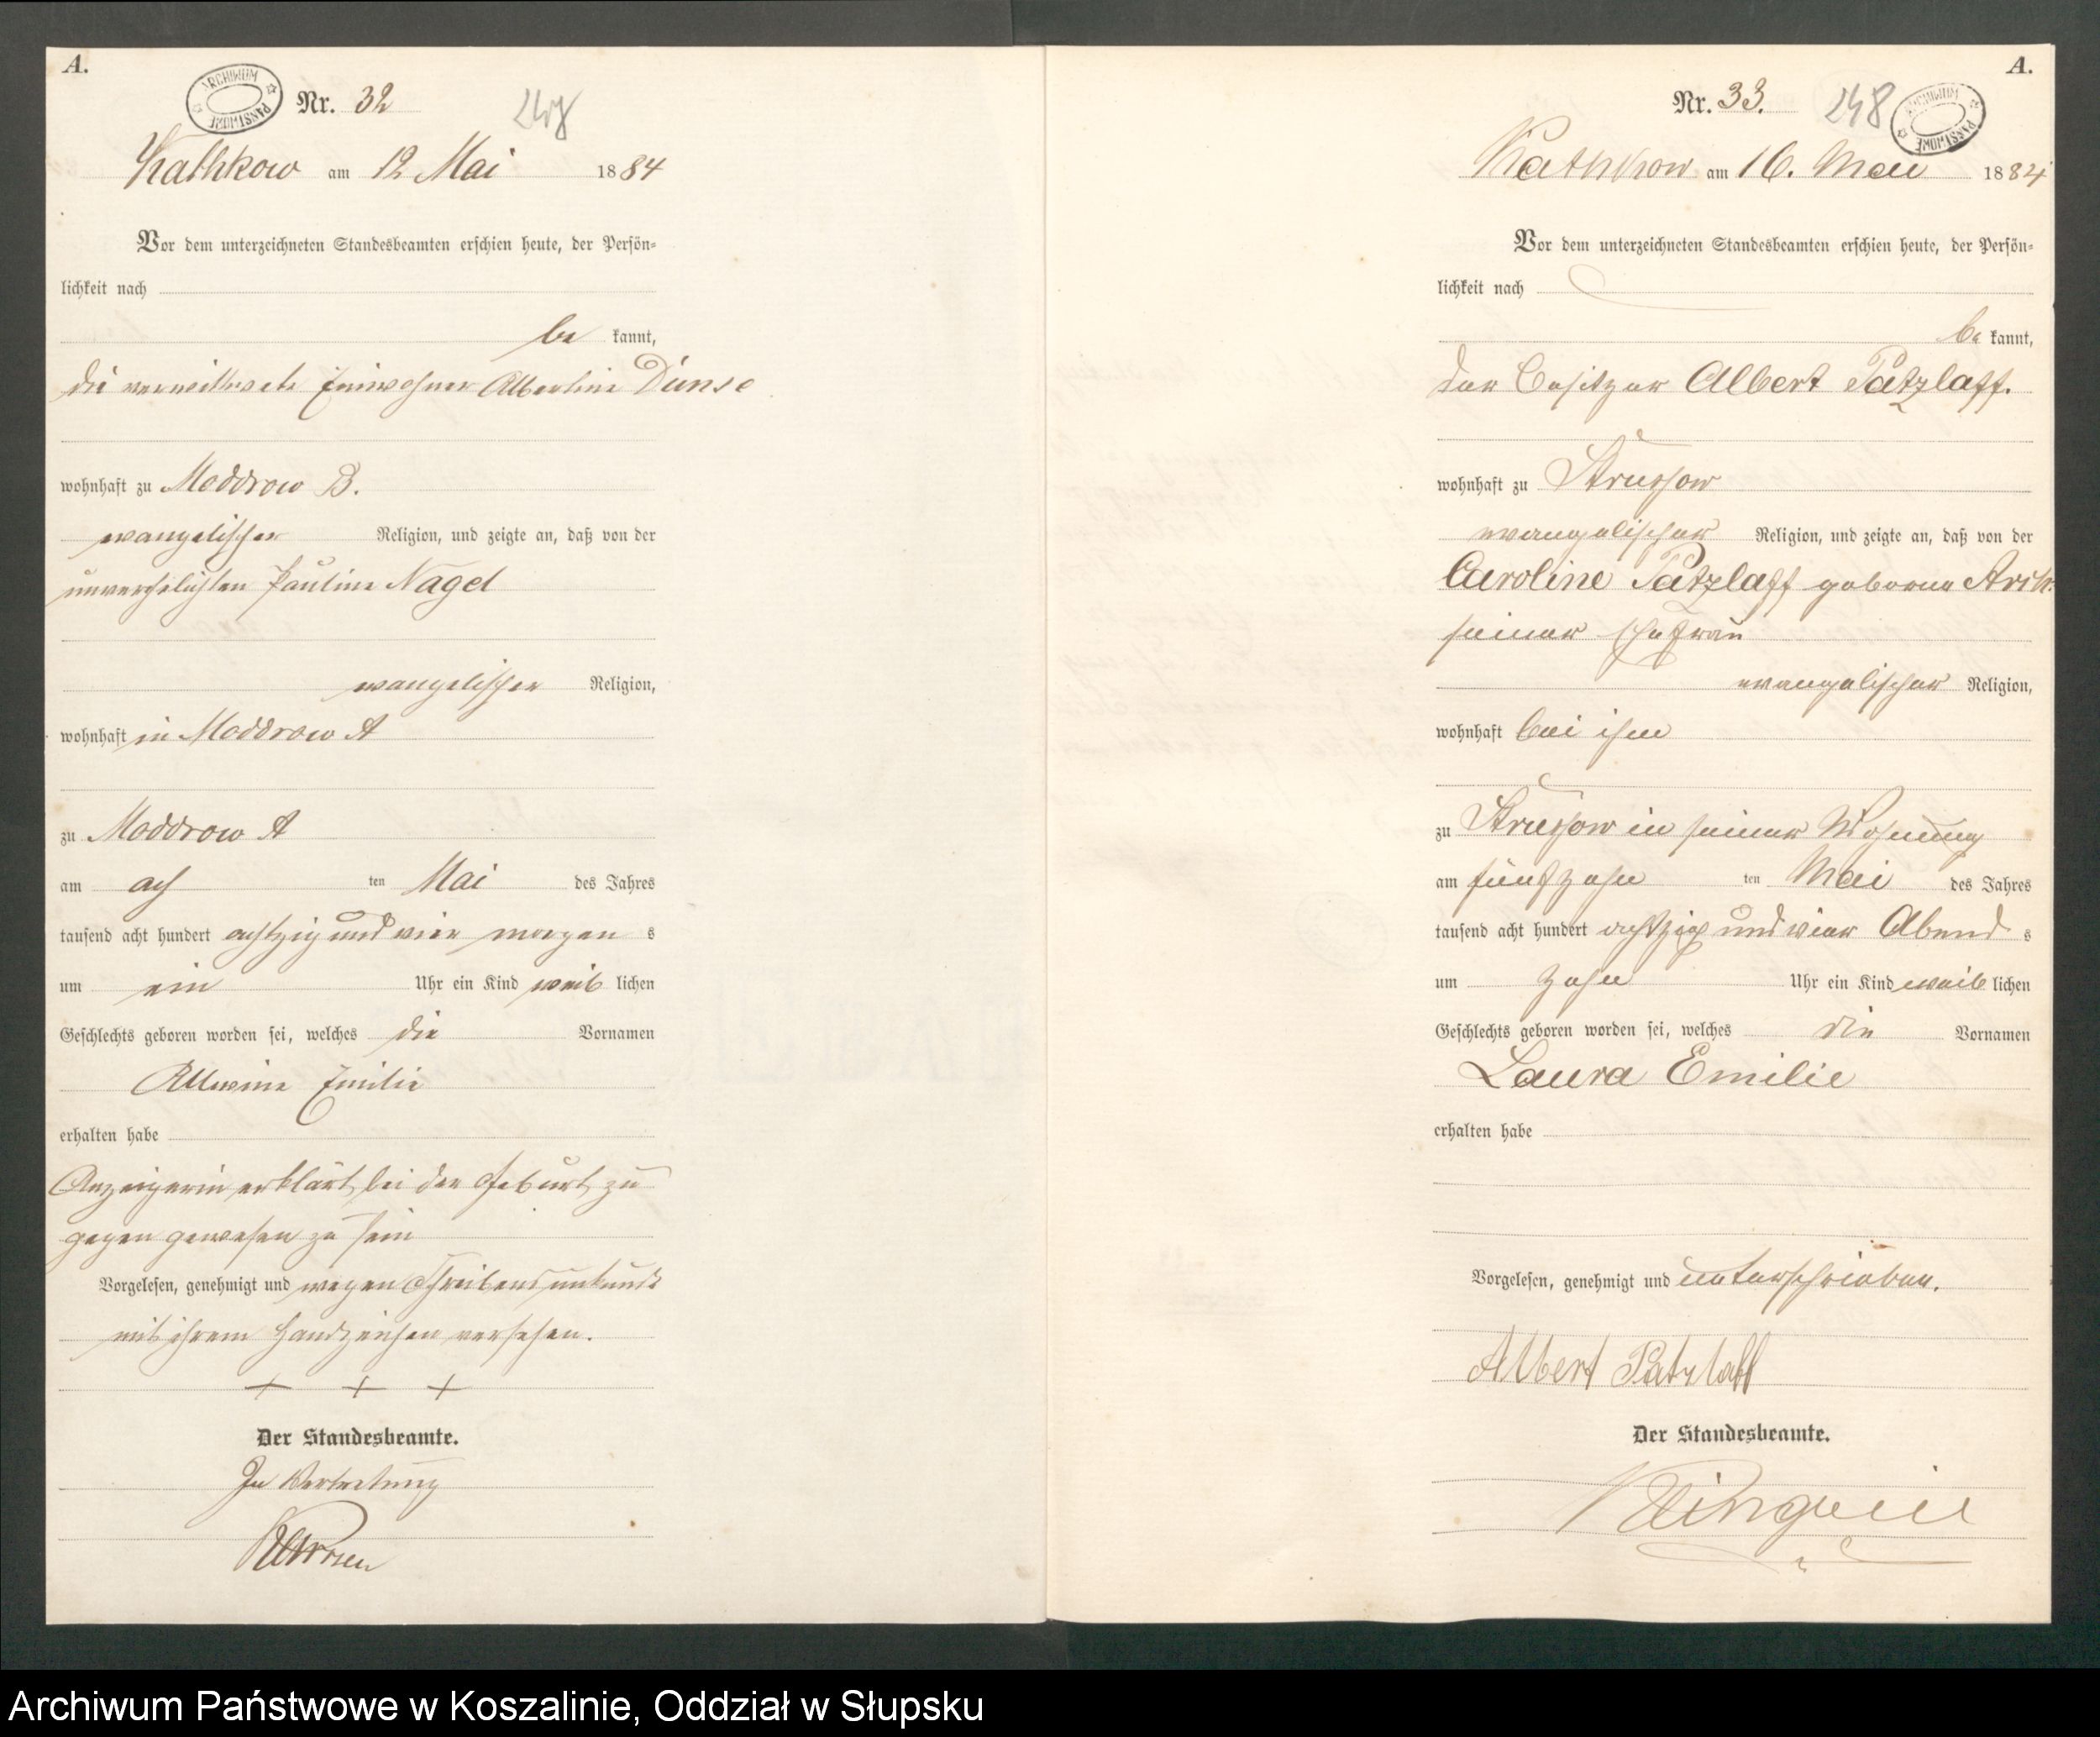 A.
ARCHIWUM PAŃSTWOWE
Nr. 32
Kathkow am 12 Mai 1884
Vor dem unterzeichneten Standesbeamten erschien heute, der Persön-
lichkeit nach
be kannt,
die verwittwete Einwohner Albertine Dünse
wohnhaft zu Moddrow B.
evangelischer Religion, und zeigte an, daß von der
unverehelichten Pauline Nagel
evangelischer Religion,
wohnhaft in Moddrow A
zu Moddrow A
am ach ten Mai des Jahres
tausend acht hundert achtzig und vier morgen s
um ein Uhr ein Kind weib lichen
Geschlechts geboren worden sei, welches die Vornamen
Allwine Emilie
erhalten habe
Anzeigerin erklärt, bei der Geburt zu
gegen gewesen zu sein
Vorgelesen, genehmigt und wegen Schreibensunkunde
mit ihrem Handzeichen versehen.
+ + +
Der Standesbeamte.
In Vertretung
A.
Nr. 33. 248
ARCHIWUM PAŃSTWOWE
Kathkow am 16. Mai 1884
Vor dem unterzeichneten Standesbeamten erschien heute, der Persön-
lichkeit nach
be kannt,
der Besitzer Albert Patzlaff.
wohnhaft zu Strussow
evangelischer Religion, und zeigte an, daß von der
Caroline Patzlaff geborne
seiner Ehefrau
evangelischer Religion,
wohnhaft bei ihm
zu Strussow in seiner Wohnung
am fünfzehn ten Mai des Jahres
tausend acht hundert achtzig und vier Abend s
um zehn Uhr ein Kind weib lichen
Geschlechts geboren worden sei, welches die Vornamen
Laura Emilie
erhalten habe
Vorgelesen, genehmigt und unterschrieben.
Albert Patzlaff
Der Standesbeamte.
Archiwum Państwowe w Koszalinie, Oddział w Słupsku